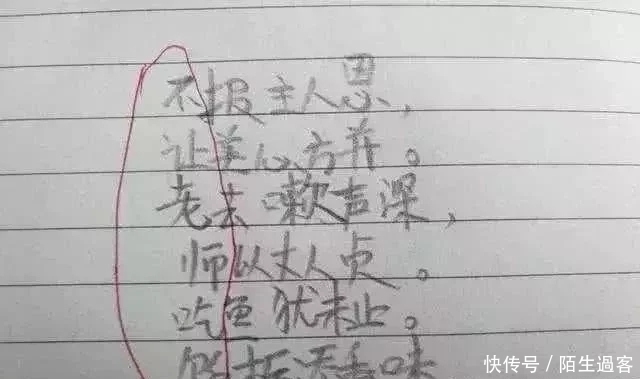 不报主人恩，
让美心方并。
老去嗽声深，
师以丈人贞。
吃鱼犹未止。
添香味
快传号 / 陌生過客